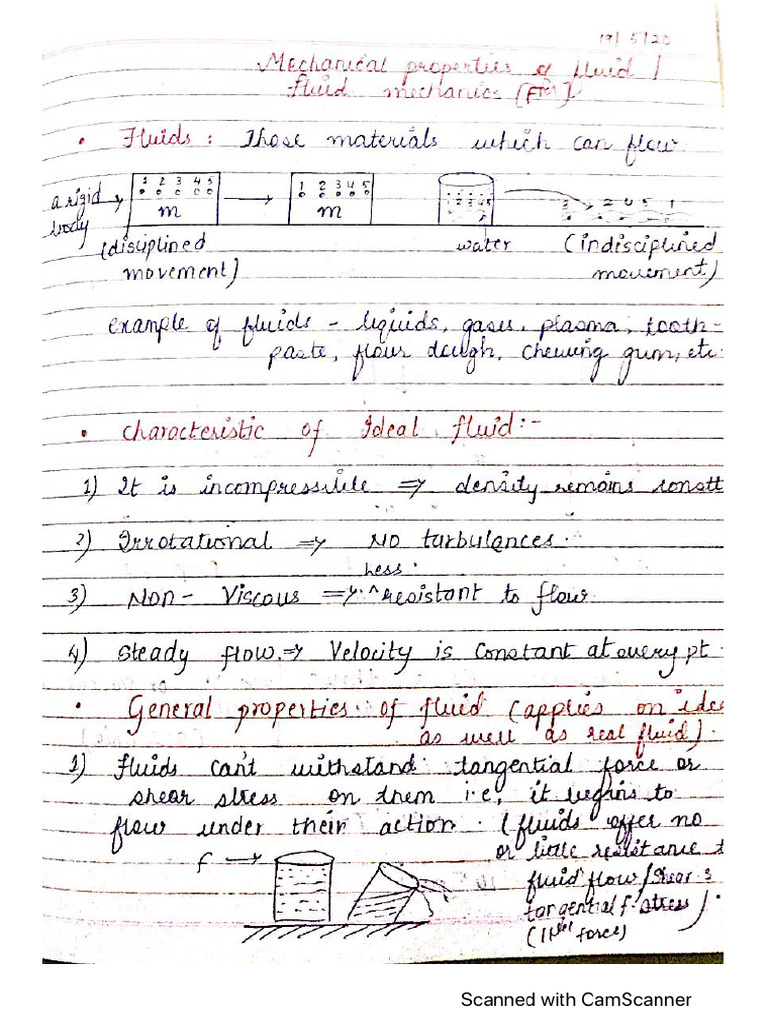 19/5/20
Mechanical properties of fluid /
fluid mechanics [FM].
• Fluids: Those materials which can flow
a rigid body
1 2 3 4 5
m
1 2 3 4 5
m
1 2 3 4 5
3 2 4 5 1
(disciplined movement)
water
(indisciplined movement)
example of fluids - liquids, gases, plasma, tooth-
paste, flour dough, chewing gum, etc.
• Characteristic of Ideal fluid:-
1) It is incompressible => density remains constt
2) Irrotational => No turbulances.
3) Non-Viscous => less resistant to flow
4) Steady flow => Velocity is constant at every pt.
• General properties of fluid (applies on idea
as well as real fluid).
1) Fluids can't withstand tangential force or
shear stress on them i.e, it begins to
flow under their action. (fluids offer no
or little resistance t
fluid flow/shear &
tangential f. stress).
(11lel force)
f
Scanned with CamScanner